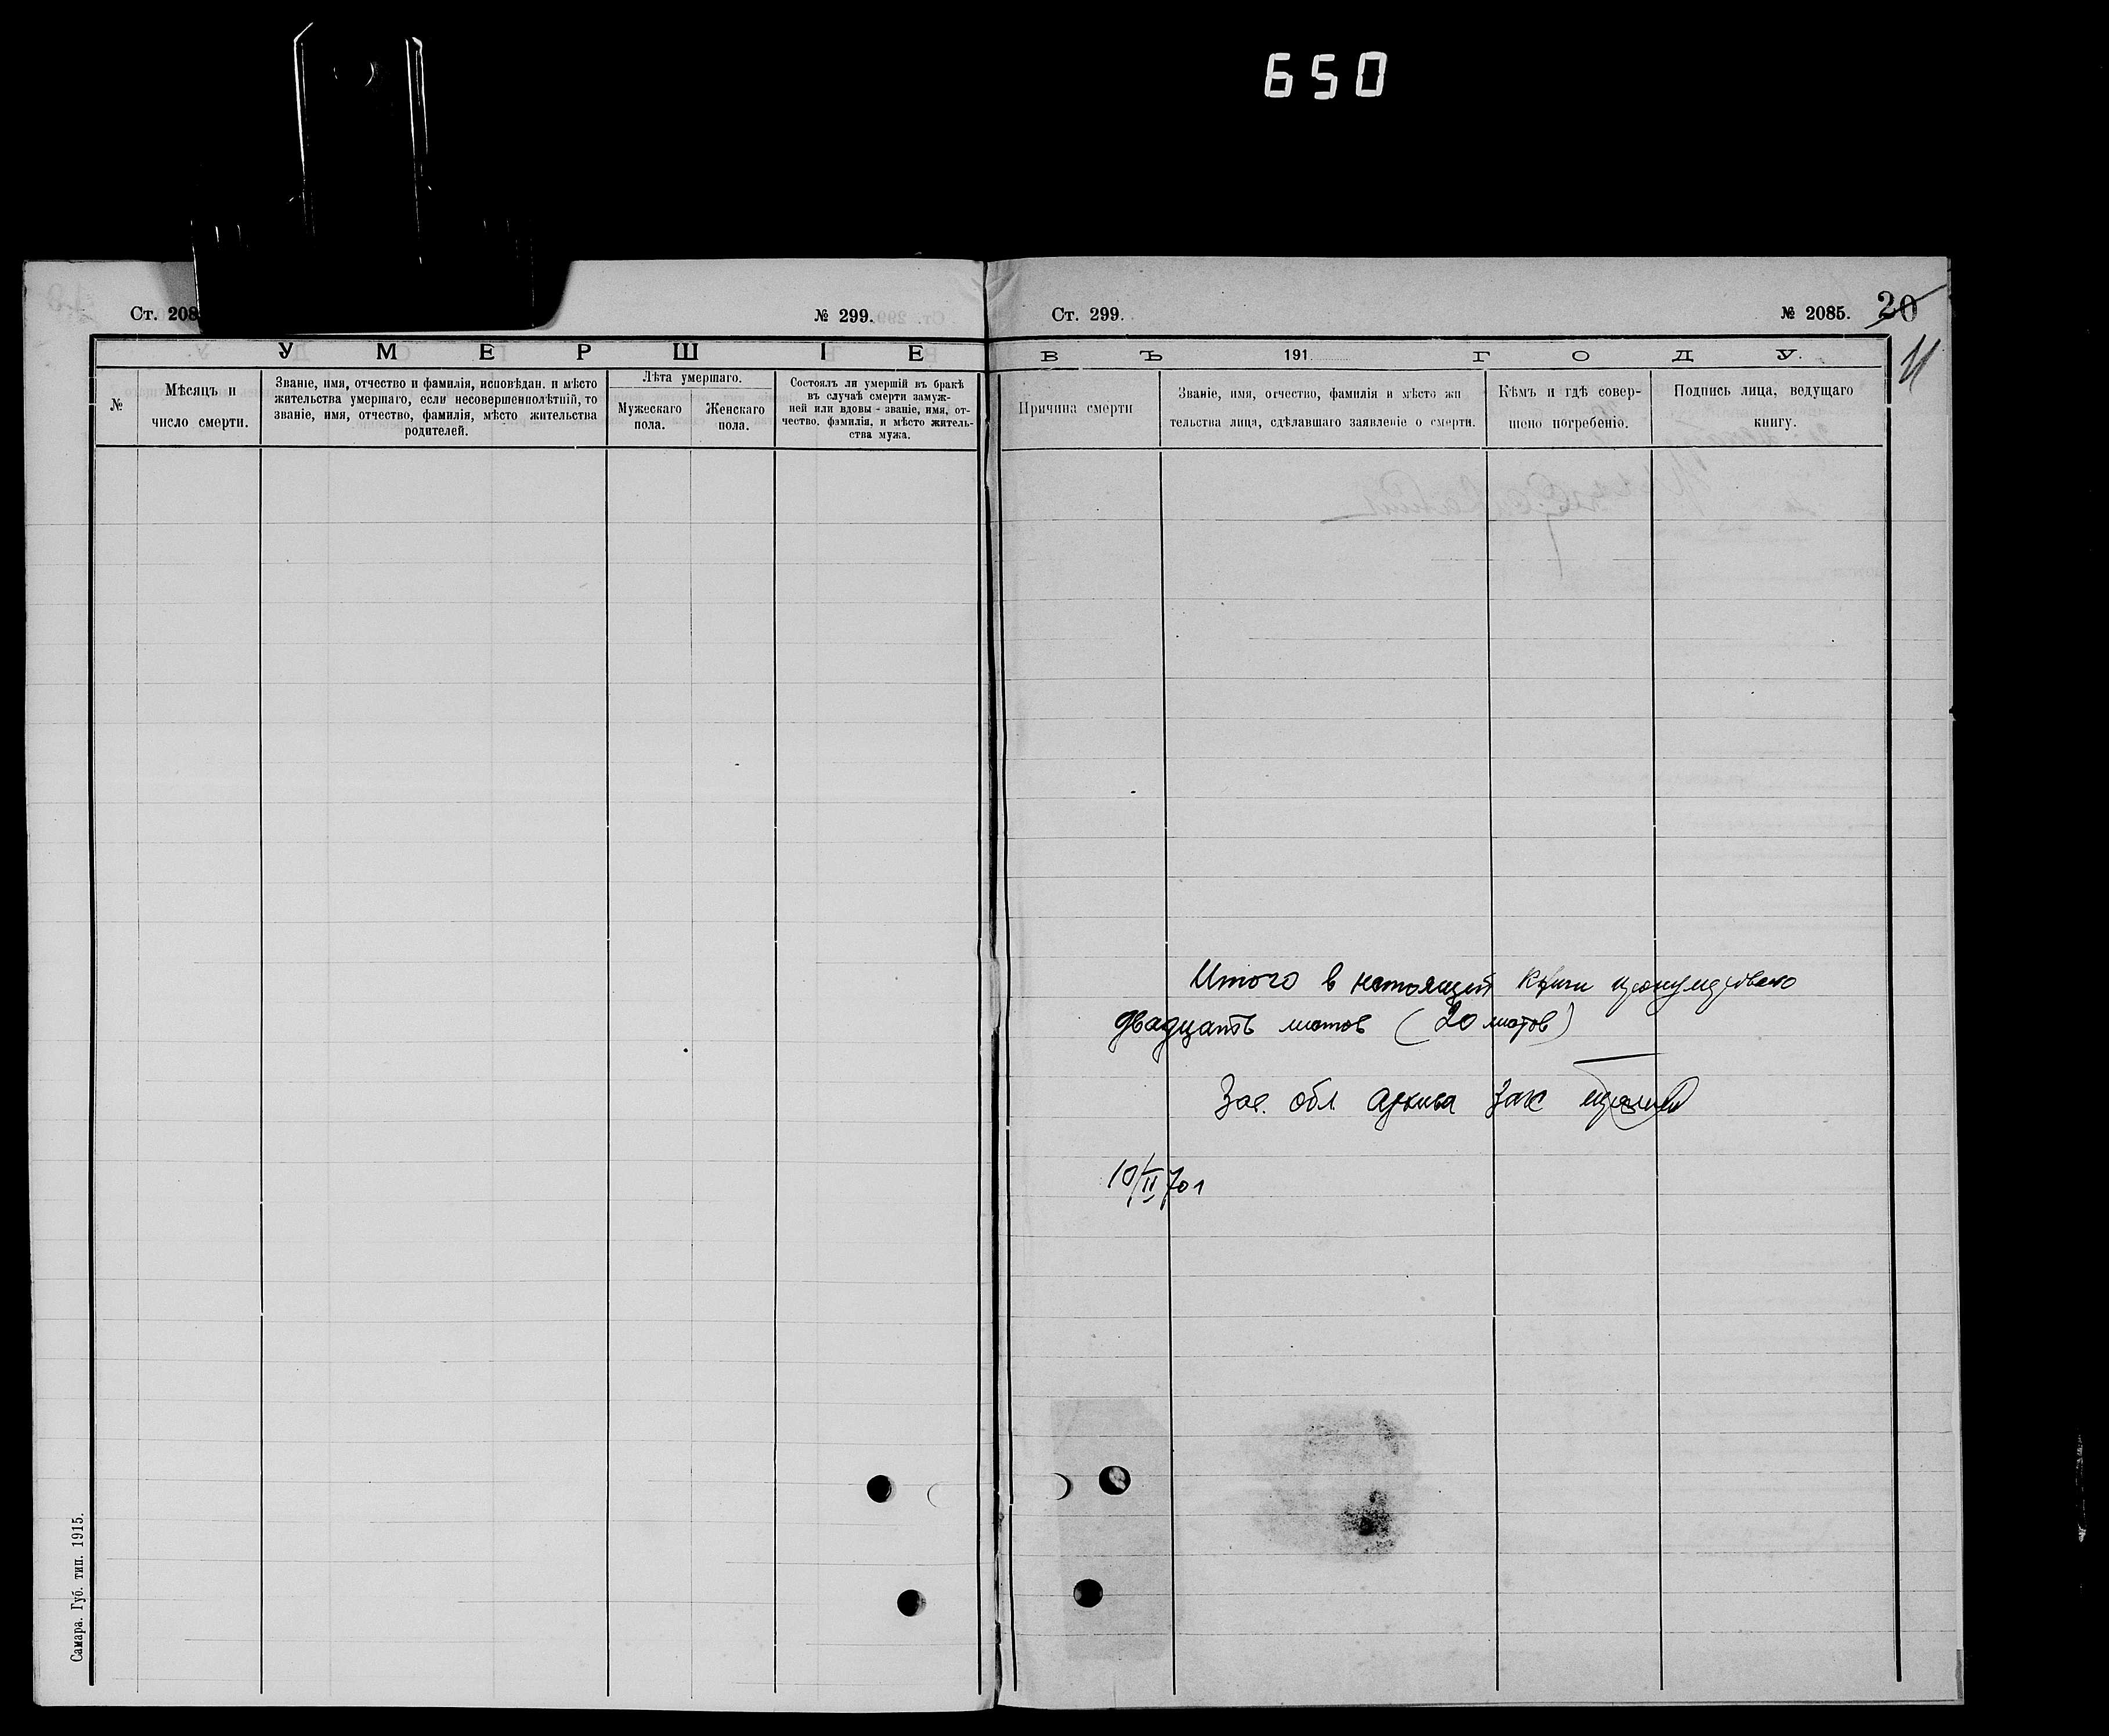 650
Ст. 208
№ 299.
УМЕРШІЕ
№
Мѣсяцъ и
число смерти.
Званіе, имя, отчество и фамилія, исповѣдан. и мѣсто
жительства умершаго, если несовершеннолѣтній, то
званіе, имя, отчество, фамилія, мѣсто жительства
родителей.
Лѣта умершаго.
Мужескаго
пола.
Женскаго
пола.
Состоялъ ли умершій въ бракѣ
въ случаѣ смерти замуж-
ней или вдовы - званіе, имя, от-
чество. фамилія, и мѣсто житель-
ства мужа.
Самара. Губ. тип. 1915.
Ст. 299.
№ 2085.
20
11
ВЪ 191 ГОДУ.
Причина смерти
Званіе, имя, отчество, фамилія и мѣсто жи
тельства лица, сдѣлавшаго заявленіе о смерти.
Кѣмъ и гдѣ совер-
шено погребеніе.
Подпись лица, ведущаго
книгу.
Итого в настоящей книги пронумеровано
двадцать листов (20 листов)
Зав. обл архива
10/II 70